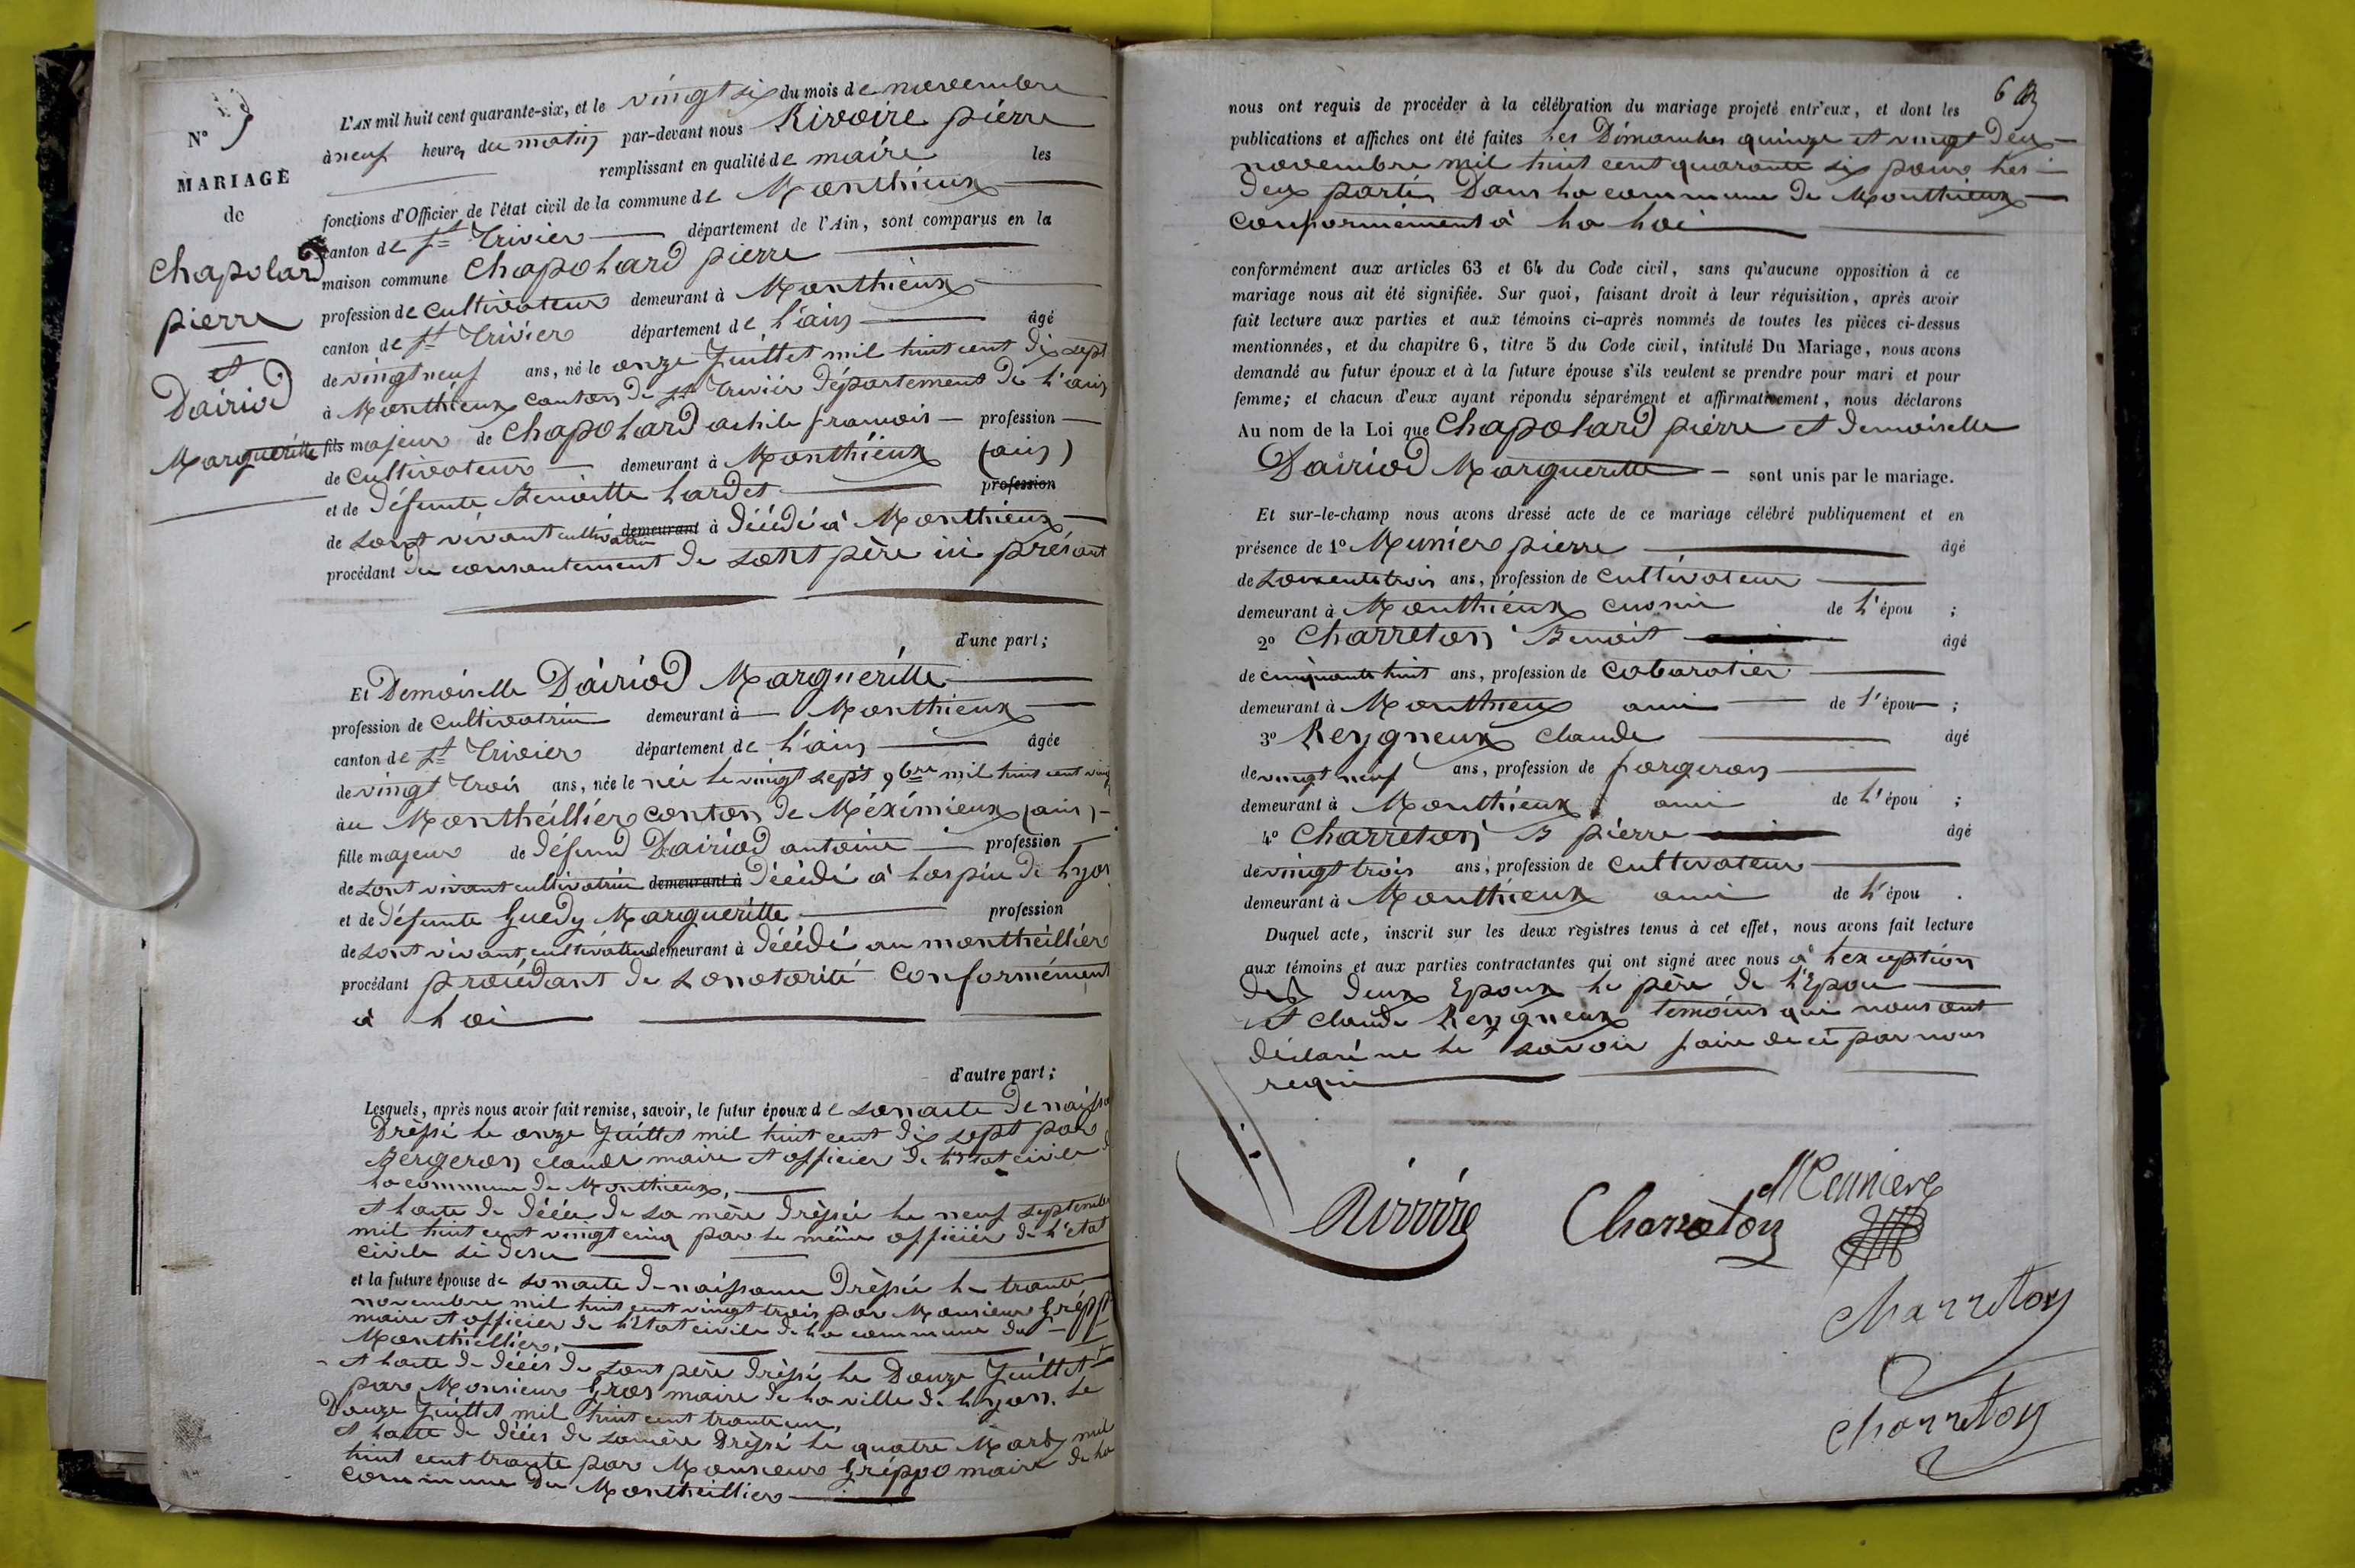 N° 9
MARIAGE
de
Chapolard
pierre
et
Dairiod
Margueritte
L'AN mil huit cent quarante-six, et le vingt six du mois de novembre
à neuf heures du matin par-devant nous Rivoire pierre
remplissant en qualité de maire les
fonctions d'Officier de l'état civil de la commune de Monthieux
canton de St Trivier département de l'Ain, sont comparus en la
maison commune Chapolard pierre
profession de cultivateur demeurant à Monthieux
canton de St Trivier département de l'ain âgé
de vingt neuf ans, né le onze Juillet mil huit cent dix sept
à Monthieux canton de St Trivier département de l'ain
fils majeur de Chapolard achile francois profession
de cultivateur demeurant à Monthieux (ain)
et de défunte Benoitte lardet profession
de sont vivant cultivatrice demeurant à décédé à Monthieux
procédant du consantement de sont père ici présant
d'une part;
Et Demoiselle Dairiod Margueritte
profession de cultivatrice demeurant à Monthieux
canton de St Trivier département de l'ain âgée
de vingt trois ans, née le née le vingt sept 9bre mil huit cent vingt
au Montheillier canton de Méximieux (ain)
fille majeur de défund Dairiod antoine profession
de sont vivant cultivatrice demeurant à décédé à hospice de lyon
et de défunte Guedy Margueritte profession
de sont vivant cultivateur demeurant à décédé au montheillier
procédant procédant de sonotorité conformément
à loi
d'autre part;
Lesquels, après nous avoir fait remise, savoir, le futur époux de sonacte de naissa
Dréssé le onze Juillet mil huit cent dix sept par
Bergeron claude maire et officier de l'état civile d
la commune de Monthieux,
et lacte de décée de sa mère dréssée le neuf septembre
mil huit cent vingt cinq par le même officiér de l'état
civile si desu
et la future épouse de sonacte de naissance dréssée le trante
novembre mil huit cent vingt trois par Monsieur Grépp
maire et officier de l'état civile de la commune du
Monthiellier,
et lacte de décés de sont père dréssé le Douze Juillet
par Monsieur Gros maire de la ville de lyon. le
Douze Juillet mil huit cent trante un,
et lacte de décés de samère dréssé le quatre Mars mil
huit cent trante par Monsieur Gréppo maire de la
commune du Montheillier
6
nous ont requis de procéder à la célébration du mariage projeté entr'eux, et dont les
publications et affiches ont été faites les Dimanches quinze et vingt deux
novembre mil huit cent quarante six pour les
deux parti dans la commune de Monthieux
conformément à la loi
conformément aux articles 63 et 64 du Code civil, sans qu'aucune opposition à ce
mariage nous ait été signifiée. Sur quoi, faisant droit à leur réquisition, après avoir
fait lecture aux parties et aux témoins ci-après nommés de toutes les pièces ci-dessus
mentionnées, et du chapitre 6, titre 5 du Code civil, intitulé Du Mariage, nous avons
demandé au futur époux et à la future épouse s'ils veulent se prendre pour mari et pour
femme; et chacun d'eux ayant répondu séparément et affirmativement, nous déclarons
Au nom de la Loi que Chapolard pierre et demoiselle
Dairiod Margueritte sont unis par le mariage.
Et sur-le-champ nous avons dressé acte de ce mariage célébré publiquement et en
présence de 1° Meunier pierre âgé
de soixente trois ans, profession de cultivateur
demeurant à Monthieux cousin de l'épou ;
2° Charreton Benoit âgé
de cinquante huit ans, profession de cabaratier
demeurant à Monthieux ami de l'épou ;
3° Reygneux claude âgé
de vingt neuf ans, profession de forgeron
demeurant à Monthieux ami de l'épou ;
4° Charreton B pierre âgé
de vingt trois ans, profession de cultivateur
demeurant à Monthieux ami de l'épou .
Duquel acte, inscrit sur les deux registres tenus à cet effet, nous avons fait lecture
aux témoins et aux parties contractantes qui ont signé avec nous à lexception
des deux Epoux le père de l'Epou
et claude Reygneux témoins qui nous ont
déclaré ne le savoir faire de ce par nous
requi
Rivoire Charreton Meunier
Charreton
Charreton